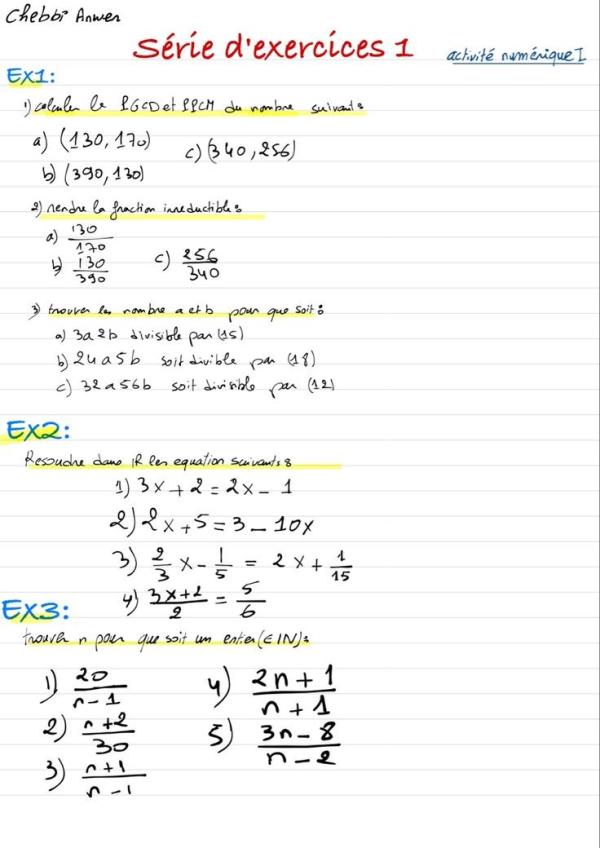 Chebbi Anwer
Série d'exercices 1
activité numérique I
EX1:
1) calculer le PGCD et PPCM du nombre suivant:
a) (130, 170)
c) (340, 256)
b) (390, 130)
2) rendre la fraction irreductible:
a) 130/170
b) 130/390
c) 256/340
3) trouver les nombre a et b pour que soit:
a) 3a2b divisible par (15)
b) 24a5b soit divible par (18)
c) 32a56b soit divisible par (12)
EX2:
Resoudre dans IR les equation suivants:
1) 3x + 2 = 2x - 1
2) 2x + 5 = 3 - 10x
3) 2/3 x - 1/5 = 2x + 1/15
4) 3x+2/2 = 5/6
EX3:
trouver n pour que soit un entier (∈ IN):
1) 20/n-1
2) n+2/30
3) n+1/n-1
4) 2n+1/n+1
5) 3n-8/n-2